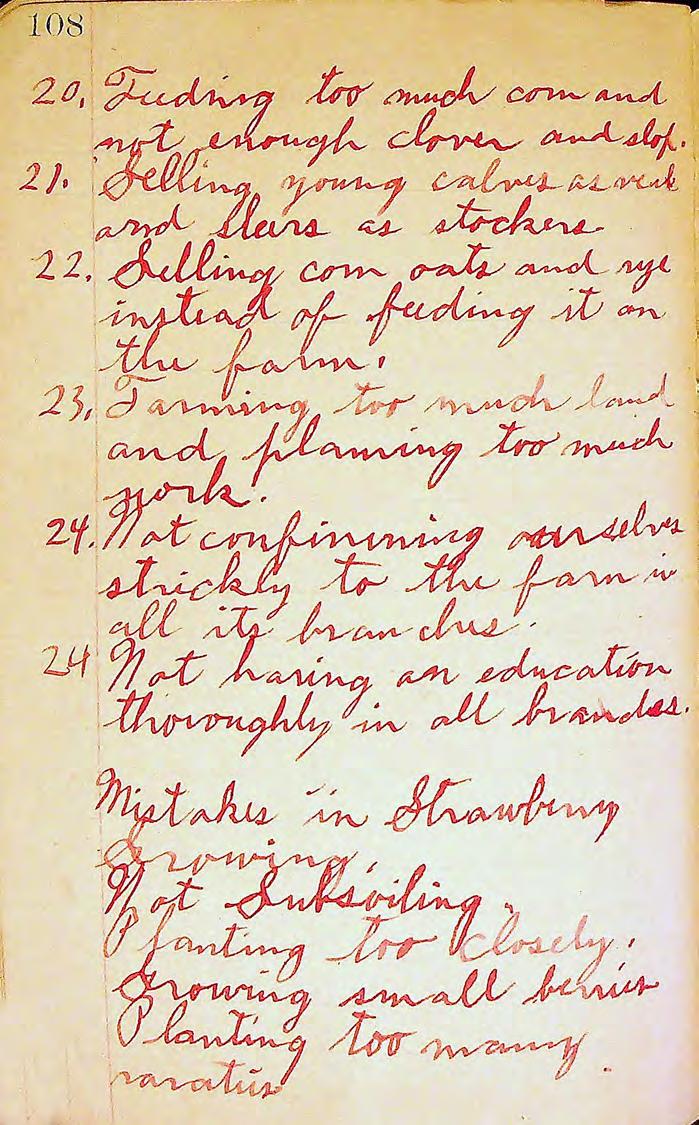 108
20. Feeding too much corn and
not enough clover and slop.
21. Selling young calves as veal
and steers as stockers.
22. Selling corn oats and rye
instead of feeding it on
the farm.
23. Farming too much land
and planning too much
work.
24. Not confinining ourselves
strickly to the farm in
all its branches.
24 Not having an education
thoroughly in all branches.
Mistakes in Strawberry
Growing.
Not Subsoiling.
Planting too closely.
Growing small berries
Planting too many
varaties